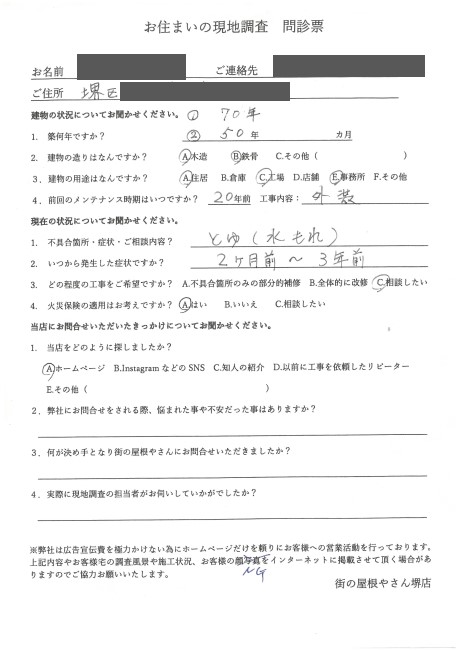 お住まいの現地調査　問診票
お名前　ご連絡先
ご住所　堺区
建物の状況についてお聞かせください。　① 70年
1. 築何年ですか？　② 50 年　カ月
2. 建物の造りはなんですか？　A.木造　B.鉄骨　C.その他（　）
3、建物の用途はなんですか？　A.住居　B.倉庫　C.工場　D.店舗　E.事務所　F.その他
4、前回のメンテナンス時期はいつですか？　20年前　工事内容：　外装
現在の状況についてお聞かせください。
1. 不具合箇所・症状・ご相談内容？　とゆ（水もれ）
2. いつから発生した症状ですか？　2ヶ月前 〜 3年前
3. どの程度の工事をご希望ですか？　A.不具合箇所のみの部分的補修　B.全体的に改修　C.相談したい
4. 火災保険の適用はお考えですか？　A.はい　B.いいえ　C.相談したい
当店にお問合せいただいたきっかけについてお聞かせください。
1. 当店をどのように探しましたか？
A.ホームページ　B.InstagramなどのSNS　C.知人の紹介　D.以前に工事を依頼したリピーター
E.その他（　）
2．弊社にお問合せをされる際、悩まれた事や不安だった事はありますか？
3．何が決め手となり街の屋根やさんにお問合せいただきましたか？
4．実際に現地調査の担当者がお伺いしていかがでしたか？
※弊社は広告宣伝費を極力かけない為にホームページだけを頼りにお客様への営業活動を行っております。
上記内容やお客様宅の調査風景や施工状況、お客様の顔写真をインターネットに掲載させて頂く場合があ
りますのでご協力お願いいたします。　NG
街の屋根やさん堺店